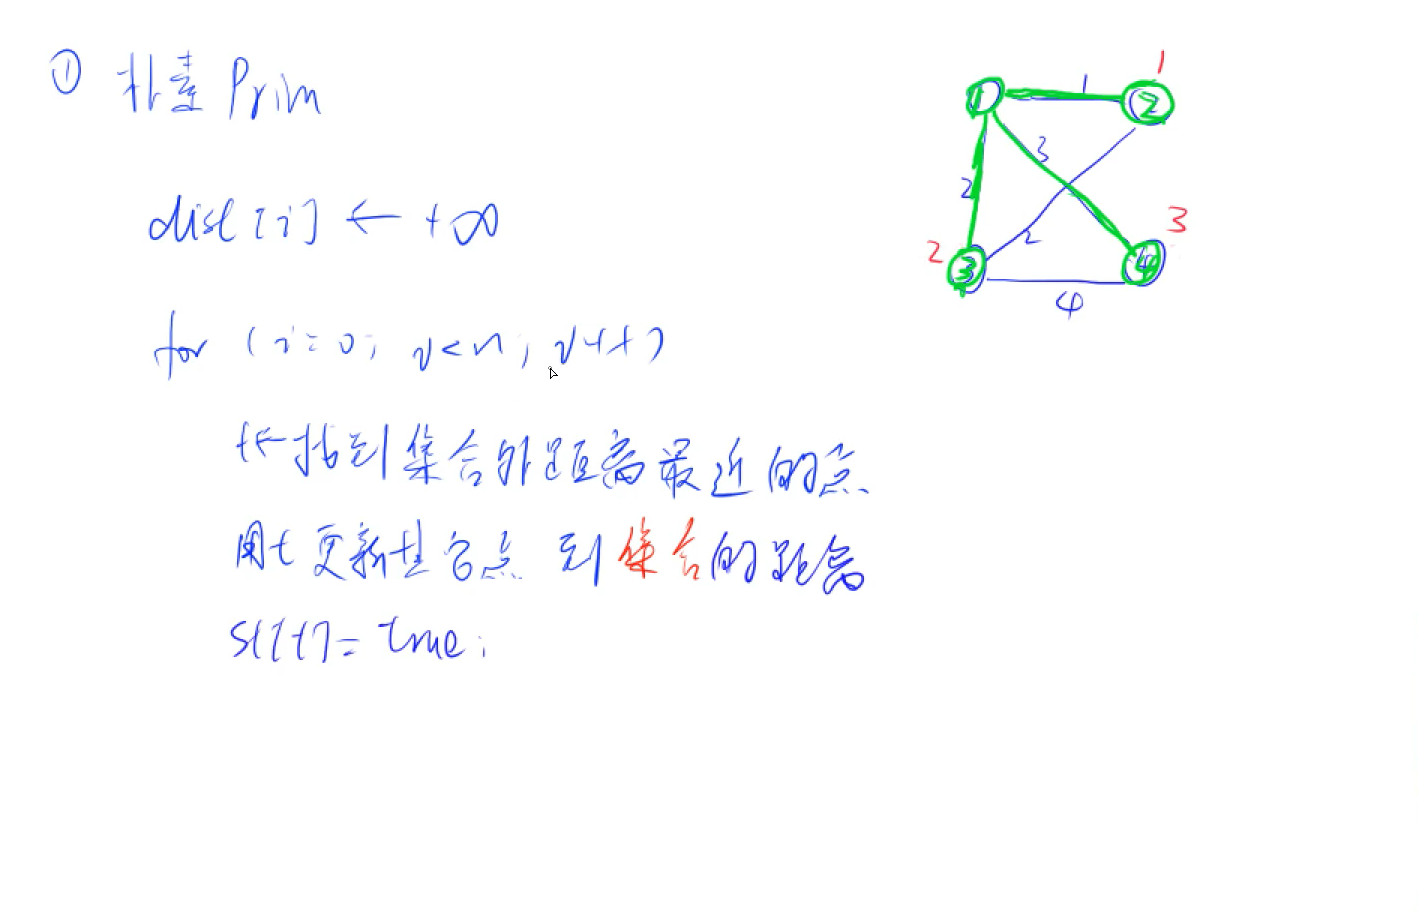 ① 朴素Prim
dist[i] ← +∞
for (i=0; i<n; i++)
t←找到集合外距离最近的点
用t更新其它点到集合的距离
st[t]=true;
1
1
1
2
3
2
2
3
2
3
4
4